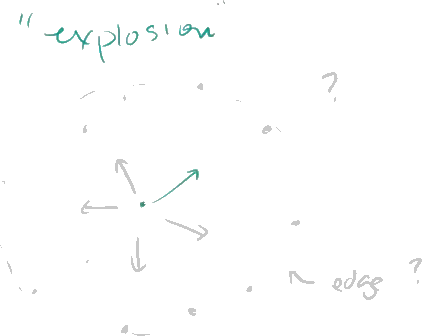 "explosion"
?
edge ?